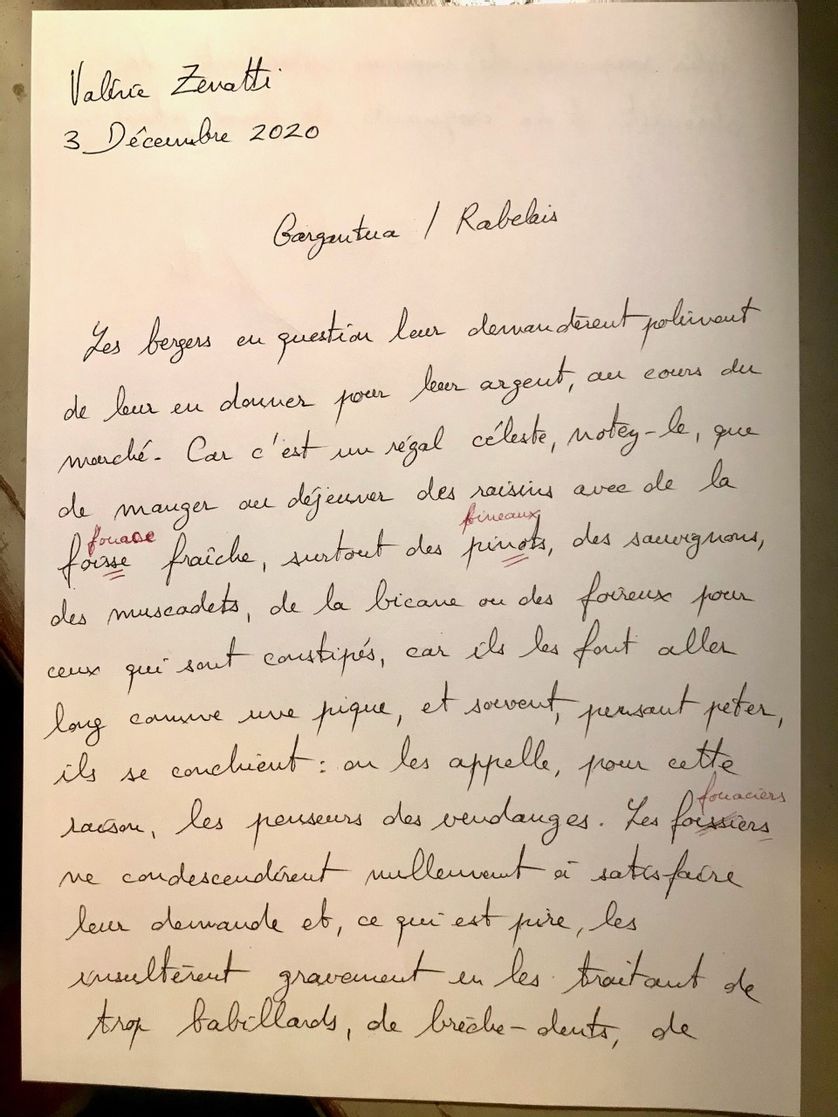 Valérie Zenatti
3 Décembre 2020
Gargantua / Rabelais
Les bergers en question leur demandèrent poliment
de leur en donner pour leur argent, au cours du
marché. Car c'est un régal céleste, notez-le, que
de manger au déjeuner des raisins avec de la
fouace pineaux
foisse fraîche, surtout des pinots, des sauvignons,
des muscadets, de la bicane ou des foireux pour
ceux qui sont constipés, car ils les font aller
long comme une pique, et souvent, pensant péter,
ils se conchient : on les appelle, pour cette
fouaciers
raison, les penseurs des vendanges. Les foissiers
ne condescendirent nullement à satisfaire
leur demande et, ce qui est pire, les
insultèrent gravement en les traitant de
trop babillards, de brèche-dents, de